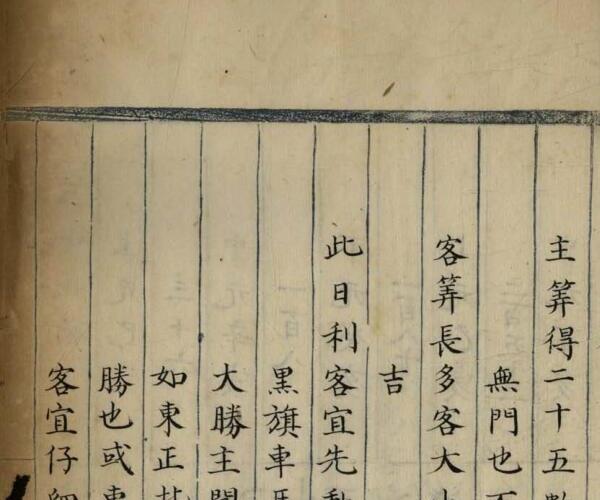 主筭得二十五
無門也
客筭長多客大
吉
此日利客宜先動
黒旗車馬
大勝主
如東正
勝也或東
客宜仔細